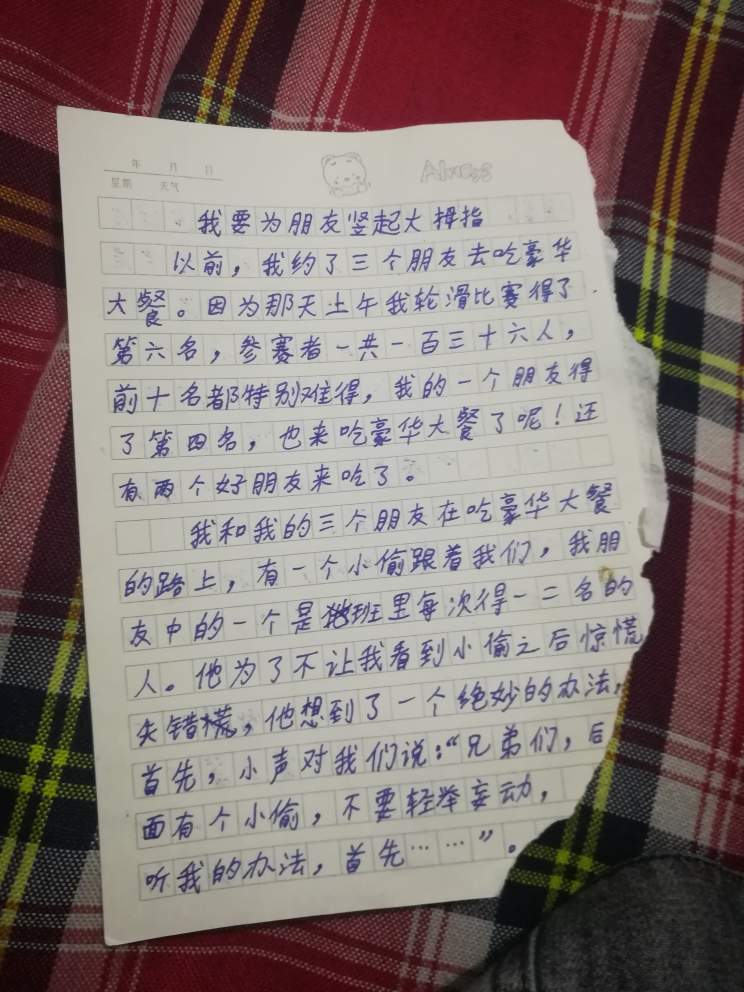 年 月 日
星期 天气
Always
我要为朋友竖起大拇指
以前，我约了三个朋友去吃豪华
大餐。因为那天上午我轮滑比赛得了
第六名，参赛者一共一百三十六人，
前十名都特别难得，我的一个朋友得
了第四名，也来吃豪华大餐了呢！还
有两个好朋友来吃了。
我和我的三个朋友在吃豪华大餐
的路上，有一个小偷跟着我们，我朋
友中的一个是班里每次得一二名的
人。他为了不让我看到小偷之后惊慌
失错慌，他想到了一个绝妙的办法，
首先，小声对我们说：“兄弟们，后
面有个小偷，不要轻举妄动，
听我的办法，首先……”。